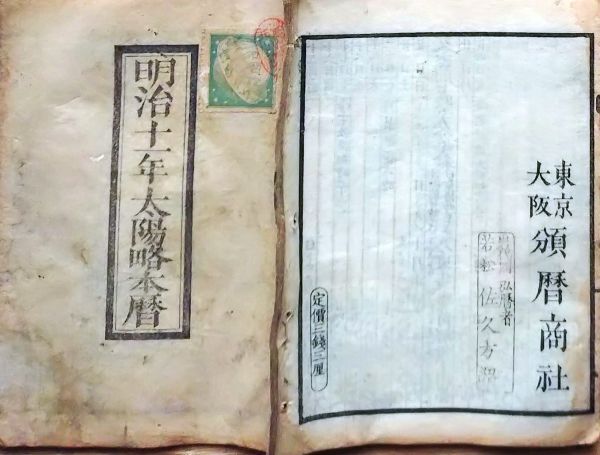 明治十一年太陽略本暦
東京
大阪
頒暦商社
弘暦者
若松 佐久方
定價三錢三厘